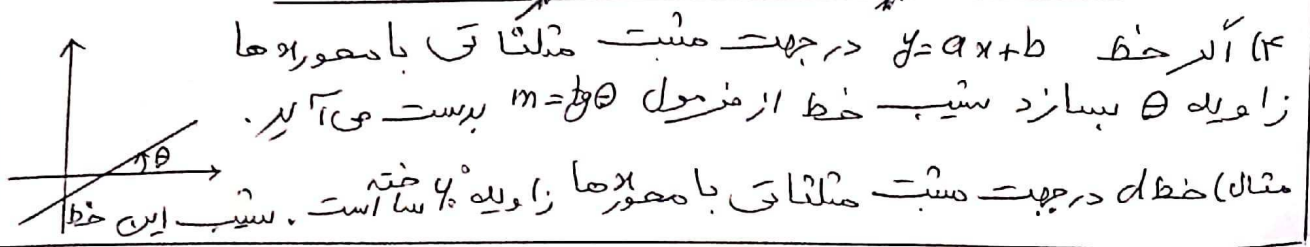 ۴) اگر خط y=ax+b در جهت مثبت مثلثاتی با محور x ها
زاویه θ بسازد شیب خط از فرمول m=tgθ بدست می‌آید.
θ
مثال) خط d در جهت مثبت مثلثاتی با محور x ها زاویه ۶۰° ساخته است. شیب این خط